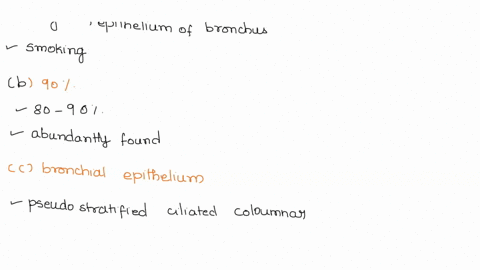 epithelium of bronchus
✓ smoking
(b) 90%
✓ 80-90%.
✓ abundantly found
(c) bronchial epithelium
✓ pseudo stratified ciliated coloumnar